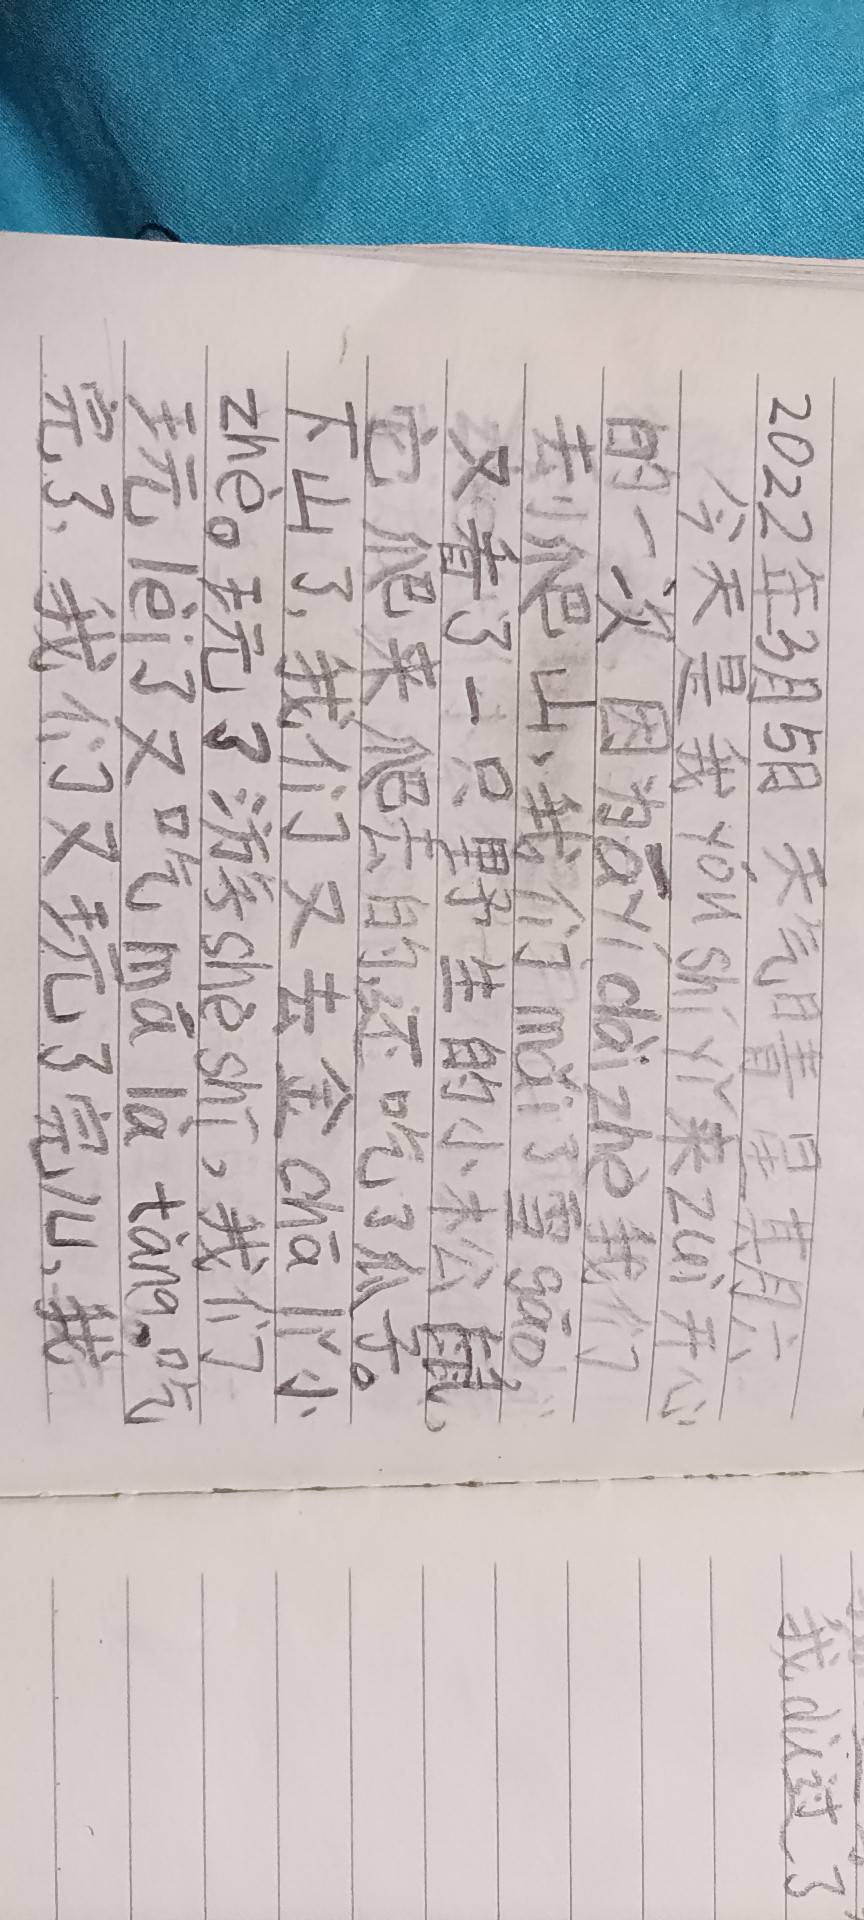 2022年3月5日 天气晴 星其月六
今天是我 yóu shǐ yǐ 来 zuì 开心
的一次因为 ā yí dài zhe 我们
去爬山、我们 mǎi 了雪 gāo
又看了一只野生的小松鼠、
它爬来爬去的还吃了瓜子。
下山了、我们又去金 chā lǐ 小
zhè。玩了游乐 shè shī，我们
玩 lèi 了又吃 má là tàng。吃
完了、我们又玩了完儿、我
我 dù 过了